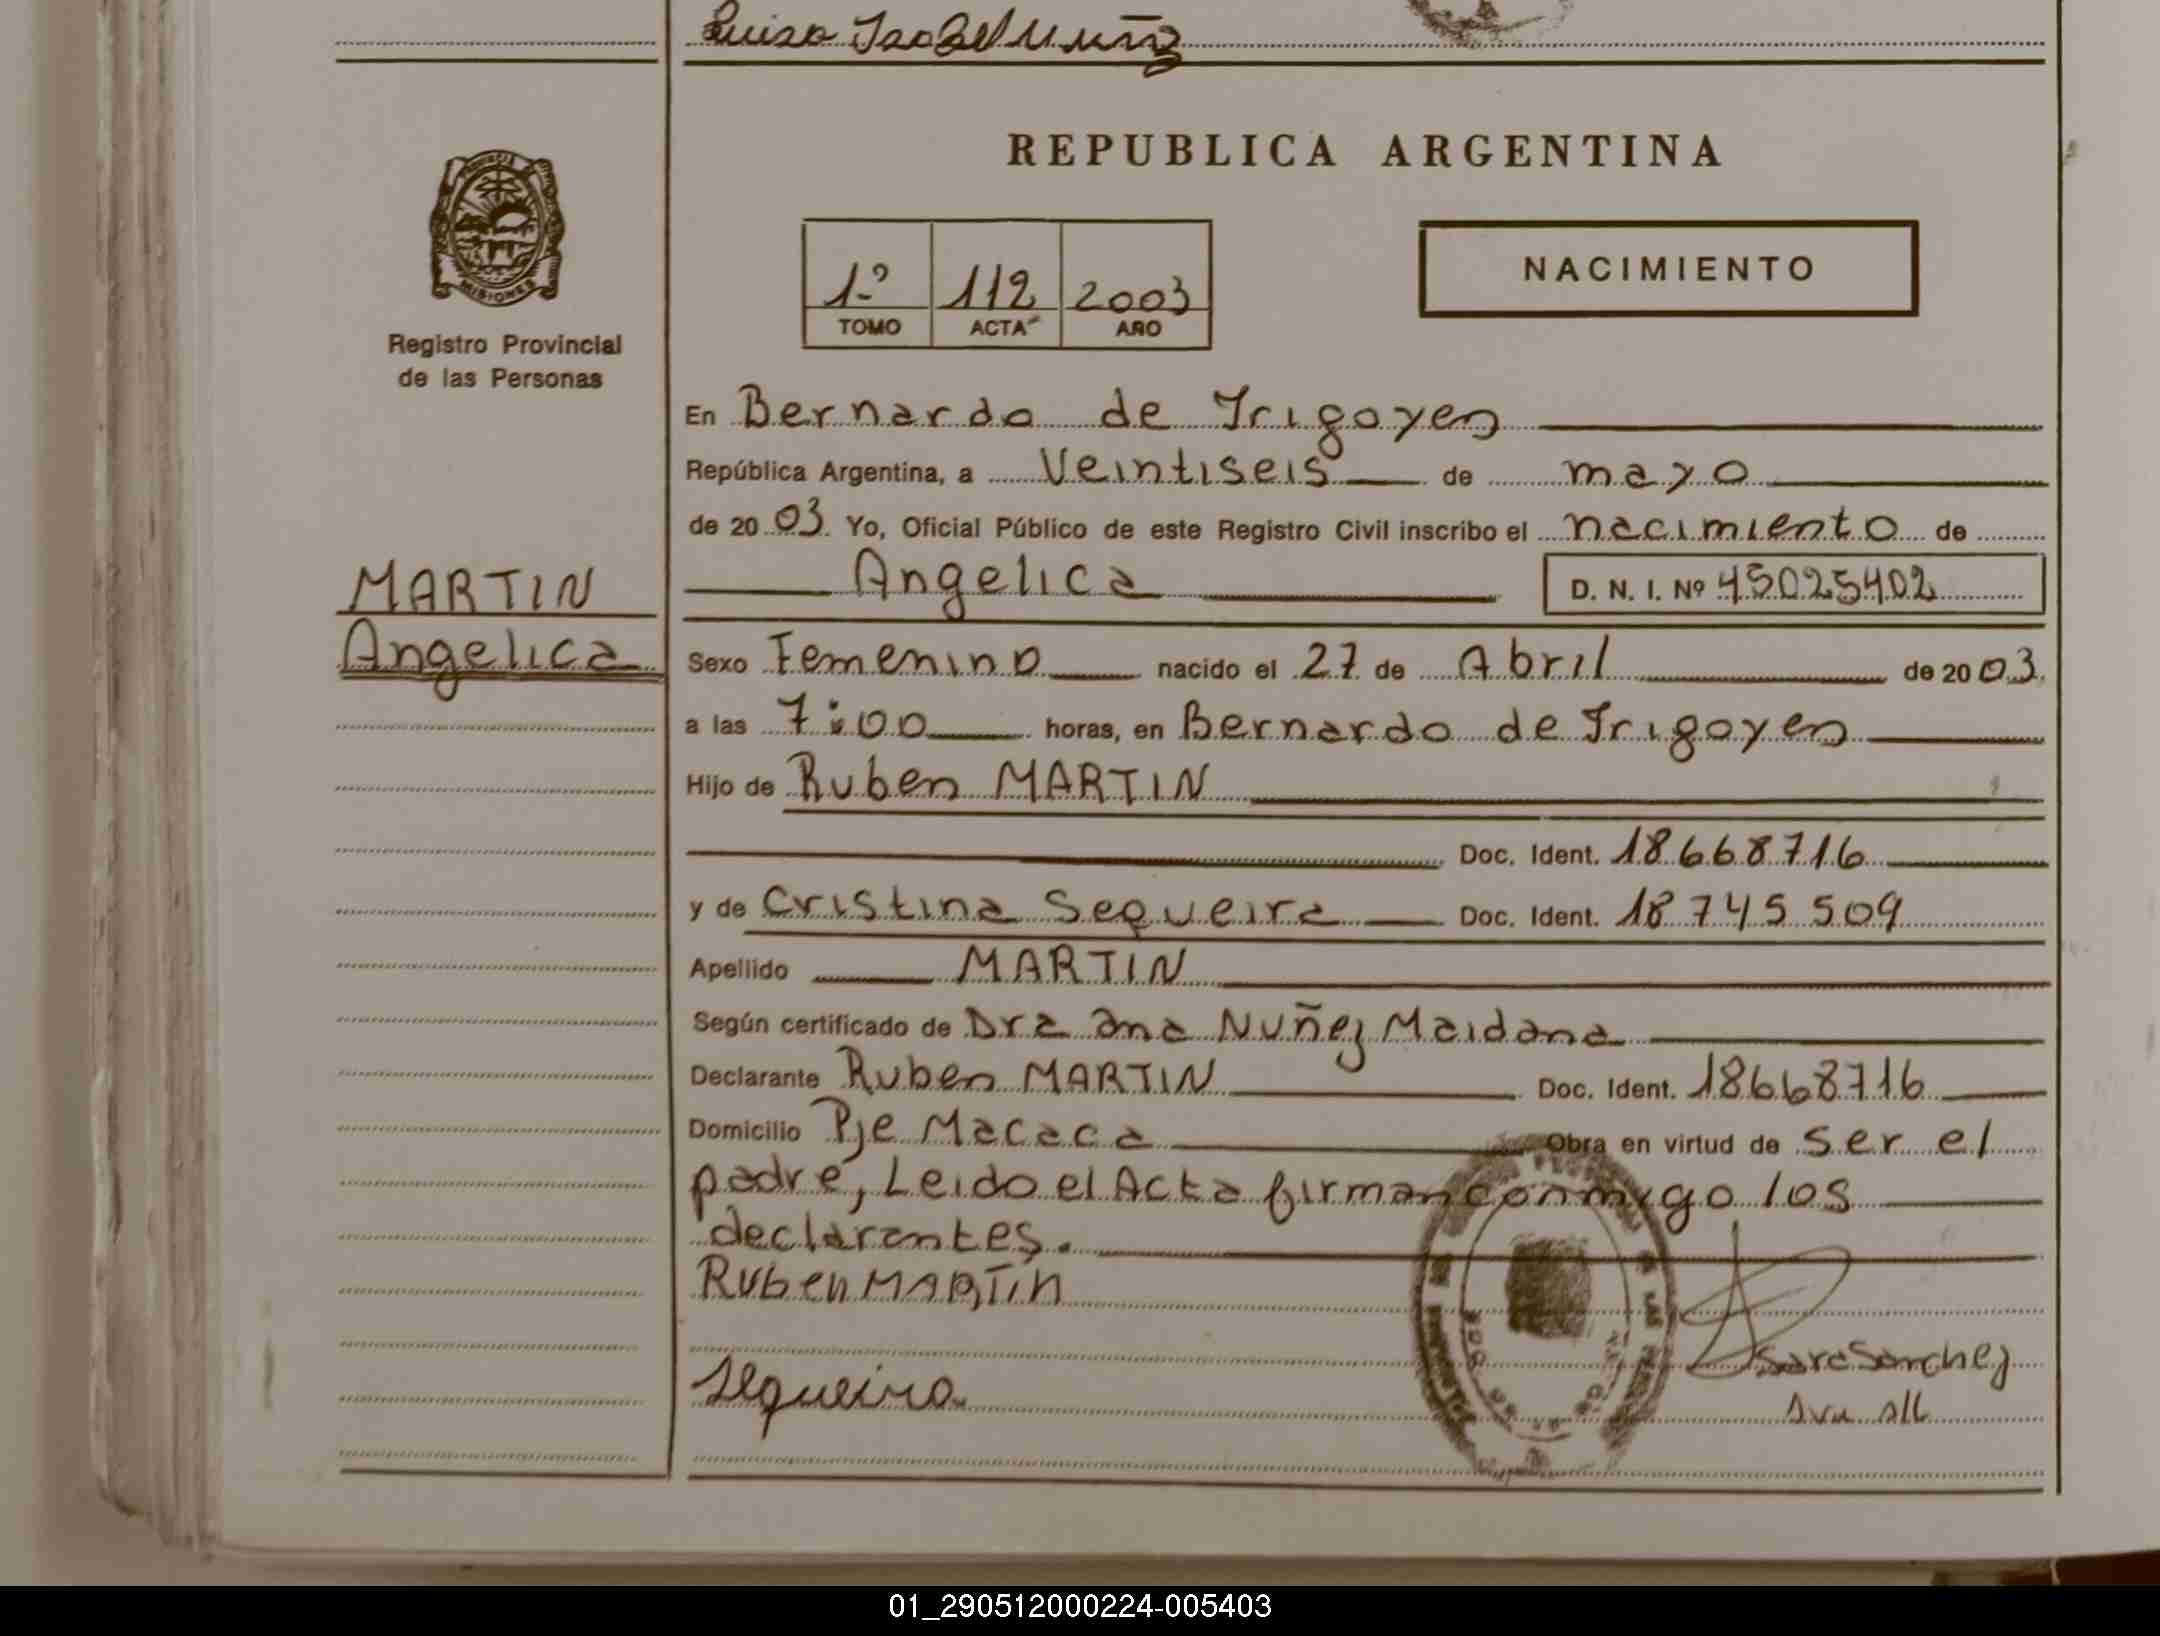 Luisa Isabel Muñoz
REPUBLICA ARGENTINA
MISIONES
Registro Provincial
de las Personas
1º 112 2003
TOMO ACTA AÑO
NACIMIENTO
En Bernardo de Irigoyen
República Argentina, a Veintiseis de mayo
de 2003. Yo, Oficial Público de este Registro Civil inscribo el nacimiento de
Angelica D. N. I. Nº 45025402
MARTIN
Angelica
Sexo Femenino nacido el 27 de Abril de 2003.
a las 7:00 horas, en Bernardo de Irigoyen
Hijo de Ruben MARTIN
Doc. Ident. 18668716
y de Cristina Sequeira Doc. Ident. 18745509
Apellido MARTIN
Según certificado de Dra Ana Nuñez Maidana
Declarante Ruben MARTIN Doc. Ident. 18668716
Domicilio Pje Macaca Obra en virtud de ser el
padre, Leido el Acta firman conmigo los
declarantes.
Ruben MARTIN
Sequeira
Sara Sanchez
01_290512000224-005403